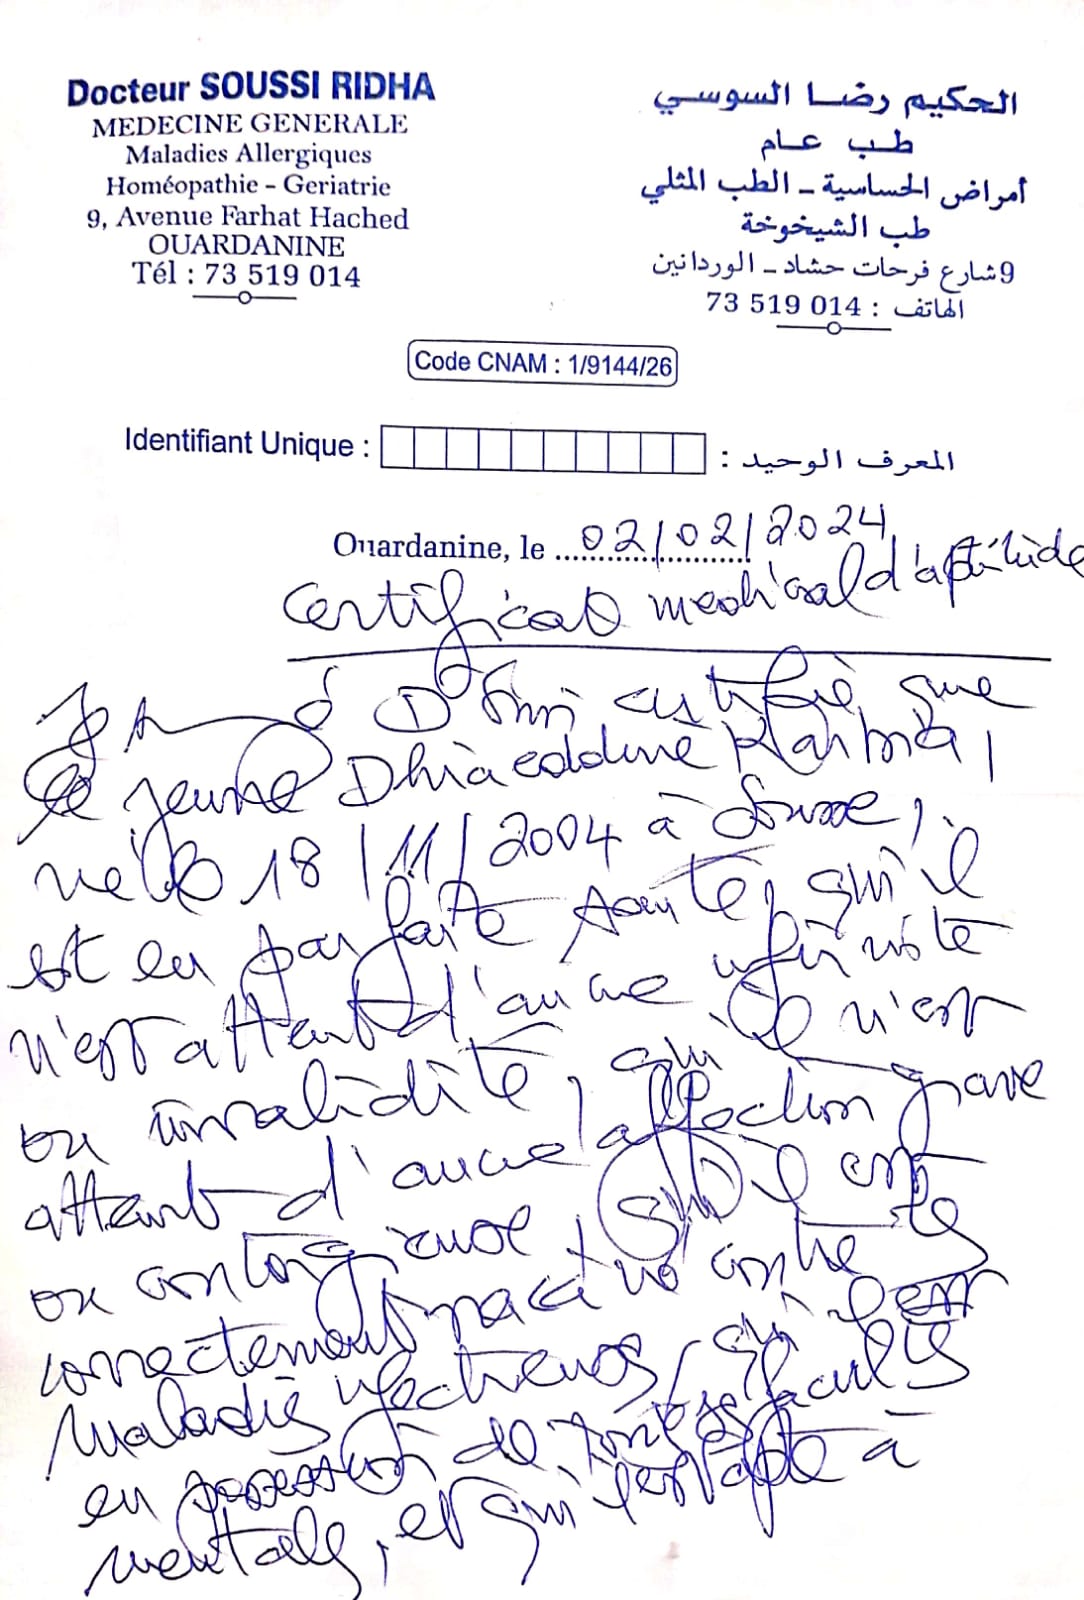 Docteur SOUSSI RIDHA
MEDECINE GENERALE
Maladies Allergiques
Homéopathie - Geriatrie
9, Avenue Farhat Hached
OUARDANINE
Tél : 73 519 014
الحكيم رضا السوسي
طب عام
أمراض الحساسية - الطب المثلي
طب الشيخوخة
9 شارع فرحات حشاد - الوردانين
الهاتف : 014 519 73
Code CNAM : 1/9144/26
Identifiant Unique : المعرف الوحيد :
Ouardanine, le 02/02/2024
Certificat medical d'aptitude
certifie que
le jeune Dhiaeddine
né le 18/11/2004 à Sousse,
est en parfaite santé, qu'il
n'est atteint d'aucune infirmité
ou invalidité, qu'il n'est
atteint d'aucune affection grave
ou contagieuse, qu'il est
correctement vacciné contre les
maladies infectieuses, qu'il est
en possession de toutes ses facultés
mentales, et qu'il est apte à